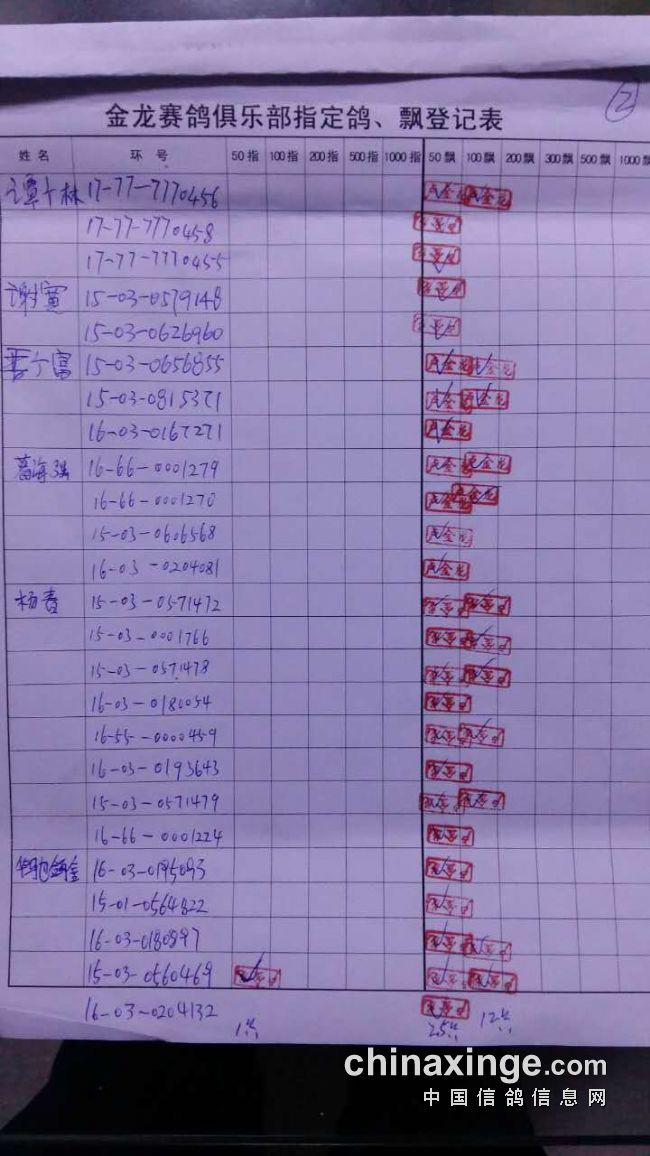 ②
金龙赛鸽俱乐部指定鸽、飘登记表
姓名 环号 50指 100指 200指 500指 1000指 50飘 100飘 200飘 300飘 500飘 1000飘
谭个林 17-77-7770456
17-77-7770458
17-77-7770455
谢寅 15-03-0579148
15-03-0626960
15-03-0656855
15-03-0815371
16-03-0167271
葛海强 16-66-0001279
16-66-0001270
15-03-0606568
16-03-0204081
杨春 15-03-0571472
15-03-0001766
15-03-0571478
16-03-0180054
16-55-0000459
16-03-0193643
15-03-0571479
16-66-0001224
16-03-0195093
15-01-0564822
16-03-0180897
15-03-0560469
16-03-0204132
1 25 12
chinaxinge.com
中国信鸽信息网